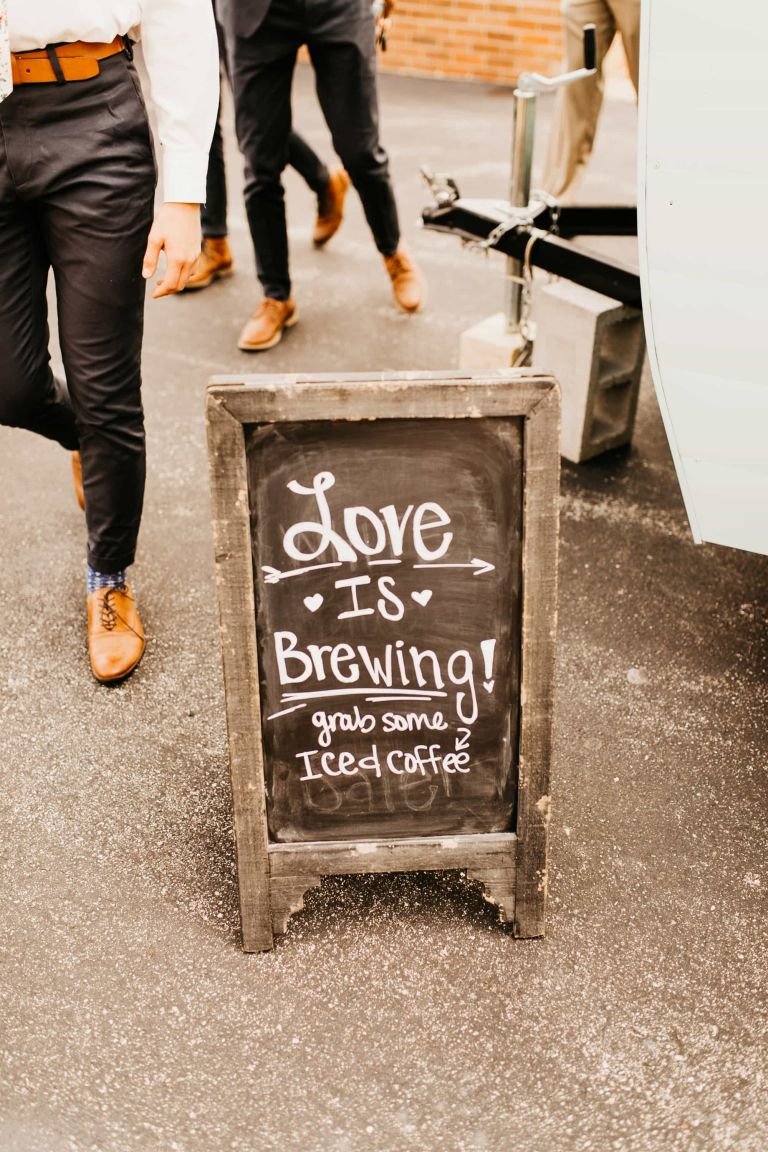 Love
Is
Brewing!
grab some
Iced coffee